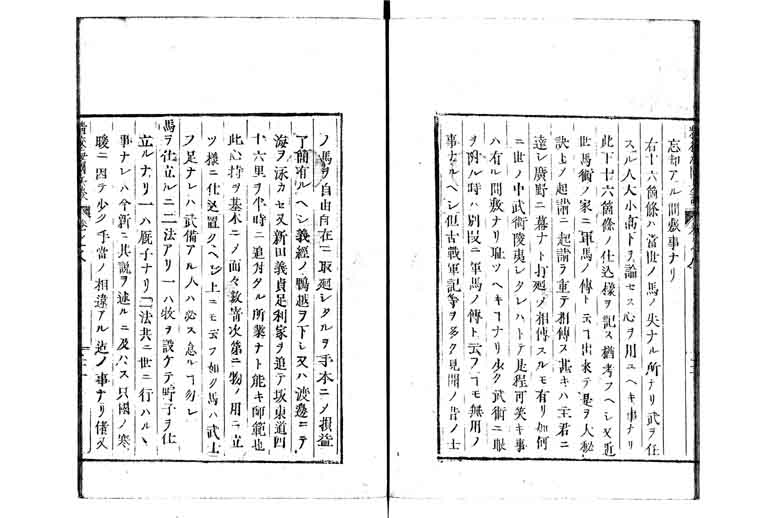 忘却アル間敷事ナリ
右十六箇條ハ當世ノ馬ノ失ナル所ナリ武ヲ任
スル人大小高下ヲ論セス心ヲ用ユヘキ事ナリ
此下十六箇條ノ仕込様ヲ記ス猶考フヘシ又近
世馬術ノ家ニ軍馬ノ傳ト云フコ出来テ是ヲ大秘
訣トノ起請ニ起請ヲ重テ相傳ス甚キハ主君ニ
達シ廣野ニ幕ナト打廻ノ相傳スルモ有リ如何
ニ世ノ中武術陵夷シタレハトテ是程可笑キ事
ハ有ル間敷ナリ耻ツヘキコナリ少ク武術ニ眼
ヲ附ル時ハ別段ニ軍馬ノ傳ト云フコモ無用ノ
事ナルヘシ但古戰軍記等ヲ多ク見聞ノ昔ノ士
ノ馬ヲ自由自在ニ取廻シタルヲ手本ニノ損益
了簡有ルヘシ義經ノ鴨越ヲ下シ又ハ渡邊ニテ
海ヲ泳カセ又新田義貞足利家ヲ追テ坂東道四
十六里ヲ半時ニ追付タル所業ナト能キ師範也
此心持ヲ基本ニノ面々數寄次第ニ物ノ用ニ立
ツ様ニ仕込置クヘシ上ニモ云フ如ク馬ハ武士
ノ足ナレハ武備アル人ハ必ス怠ルコ勿レ
馬ヲ仕立ルニ二法アリ一ハ牧ヲ設ケテ野子ヲ仕
立ルナリ一ハ厩子ナリ二法共ニ世ニ行ハルヽ
事ナレハ今新ニ其説ヲ述ルニ及ハス只國ノ寒
暖ニ因テ少ク手當ノ相違アル迠ノ事ナリ偖又